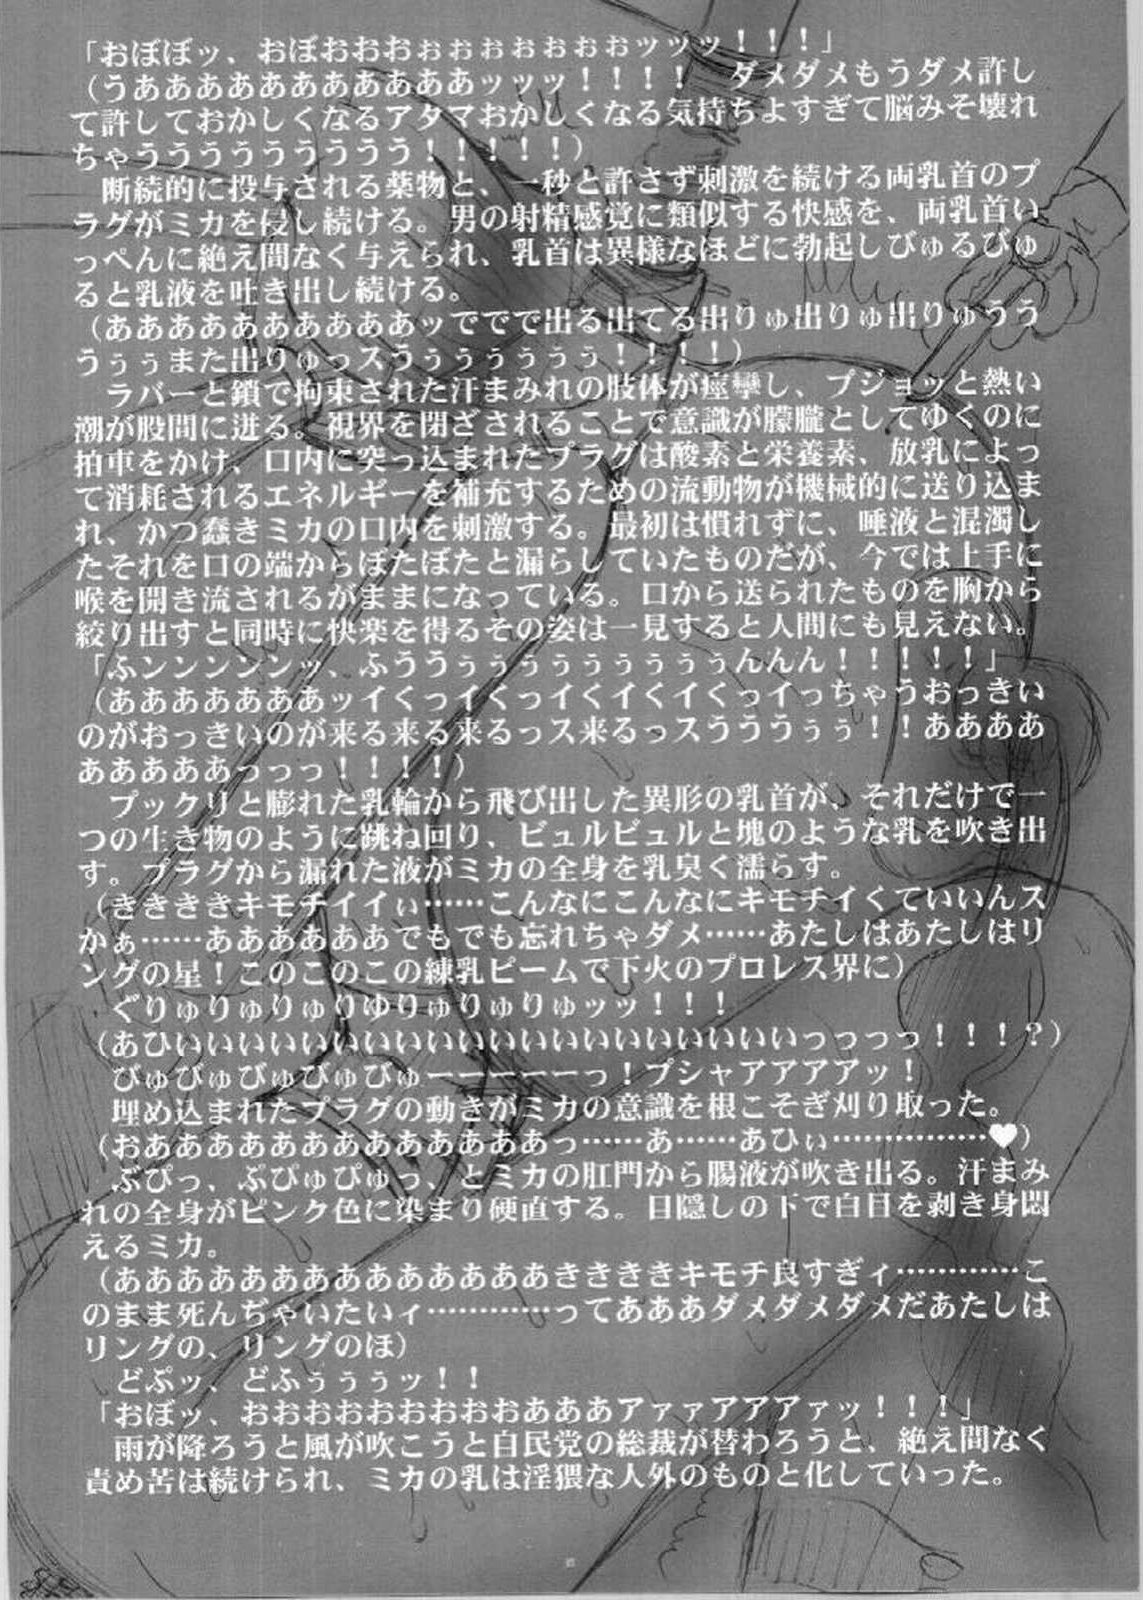 「おぼぼッ、おぼおおおぉぉぉぉぉぉぉッッッ！！！」
（うああああああああああああッッッ！！！！　ダメダメもうダメ許し
て許しておかしくなるアタマおかしくなる気持ちよすぎて脳みそ壊れ
ちゃうううううううううう！！！！！）
断続的に投与される薬物と、一秒と許さず刺激を続ける両乳首のプ
ラグがミカを侵し続ける。男の射精感覚に類似する快感を、両乳首い
っぺんに絶え間なく与えられ、乳首は異様なほどに勃起しびゅるびゅ
ると乳液を吐き出し続ける。
（ああああああああああッででで出る出てる出りゅ出りゅ出りゅうう
うぅぅまた出りゅっスうぅぅぅぅぅぅ！！！！）
ラバーと鎖で拘束された汗まみれの肢体が痙攣し、プジョッと熱い
潮が股間に迸る。視界を閉ざされることで意識が朦朧としてゆくのに
拍車をかけ、口内に突っ込まれたプラグは酸素と栄養素、放乳によっ
て消耗されるエネルギーを補充するための流動物が機械的に送り込ま
れ、かつ蠢きミカの口内を刺激する。最初は慣れずに、唾液と混濁し
たそれを口の端からぼたぼたと漏らしていたものだが、今では上手に
喉を開き流されるがままになっている。口から送られたものを胸から
絞り出すと同時に快楽を得るその姿は一見すると人間にも見えない。
「ふンンンンンッ、ふううぅぅぅぅぅぅぅぅぅんんん！！！！！」
（あああああああッイくっイくっイくイくイくっイっちゃうおっきい
のがおっきいのが来る来る来るっス来るっスうううぅぅ！！ああああ
あああああっっっ！！！！）
プックリと膨れた乳輪から飛び出した異形の乳首が、それだけで一
つの生き物のように跳ね回り、ビュルビュルと塊のような乳を吹き出
す。プラグから漏れた液がミカの全身を乳臭く濡らす。
（きききキモチイイぃ……こんなにこんなにキモチイくていいんス
かぁ……ああああああでもでも忘れちゃダメ……あたしはあたしはリ
ングの星！このこのこの練乳ビームで下火のプロレス界に）
ぐりゅりゅりゅりゆりゅりゅりゅッッ！！！
（あひぃいいいいいいいいいいいいいいいいいいいっっっっ！！！？）
びゅびゅびゅびゅびゅーーーーーっ！プシャアアアアッ！
埋め込まれたプラグの動きがミカの意識を根こそぎ刈り取った。
（おああああああああああああああっ……あ……あひぃ……………♥）
ぷぴっ、ぷぴゅぴゅっ、とミカの肛門から腸液が吹き出る。汗まみ
れの全身がピンク色に染まり硬直する。目隠しの下で白目を剥き身悶
えるミカ。
（ああああああああああああああききききキモチ良すぎィ…………こ
のまま死んぢゃいたいィ…………ってあああダメダメダメだあたしは
リングの、リングのほ）
どぷッ、どふぅぅぅッ！！
「おぼッ、おおおおおおおおおあああアァァアアアァッ！！！」
雨が降ろうと風が吹こうと自民党の総裁が替わろうと、絶え間なく
責め苦は続けられ、ミカの乳は淫猥な人外のものと化していった。